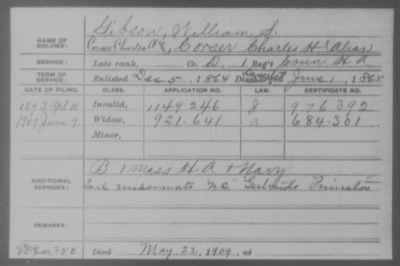 NAME OF SOLDIER: Gibson, William S.
Corser Charles H. Alias
SERVICE: Late rank, Co. D, 1 Reg't Conn H A
TERM OF SERVICE: Enlisted Dec 5, 1864 June 1, 1865
DATE OF FILING. CLASS. APPLICATION NO. LAW. CERTIFICATE NO.
Invalid, 1149.246 976392
1909 June 9 Widow, 921.641 a 684.301
Minor,
ADDITIONAL SERVICES: B 1 Mass H A + Navy
REMARKS:
Died May 22, 1909, at